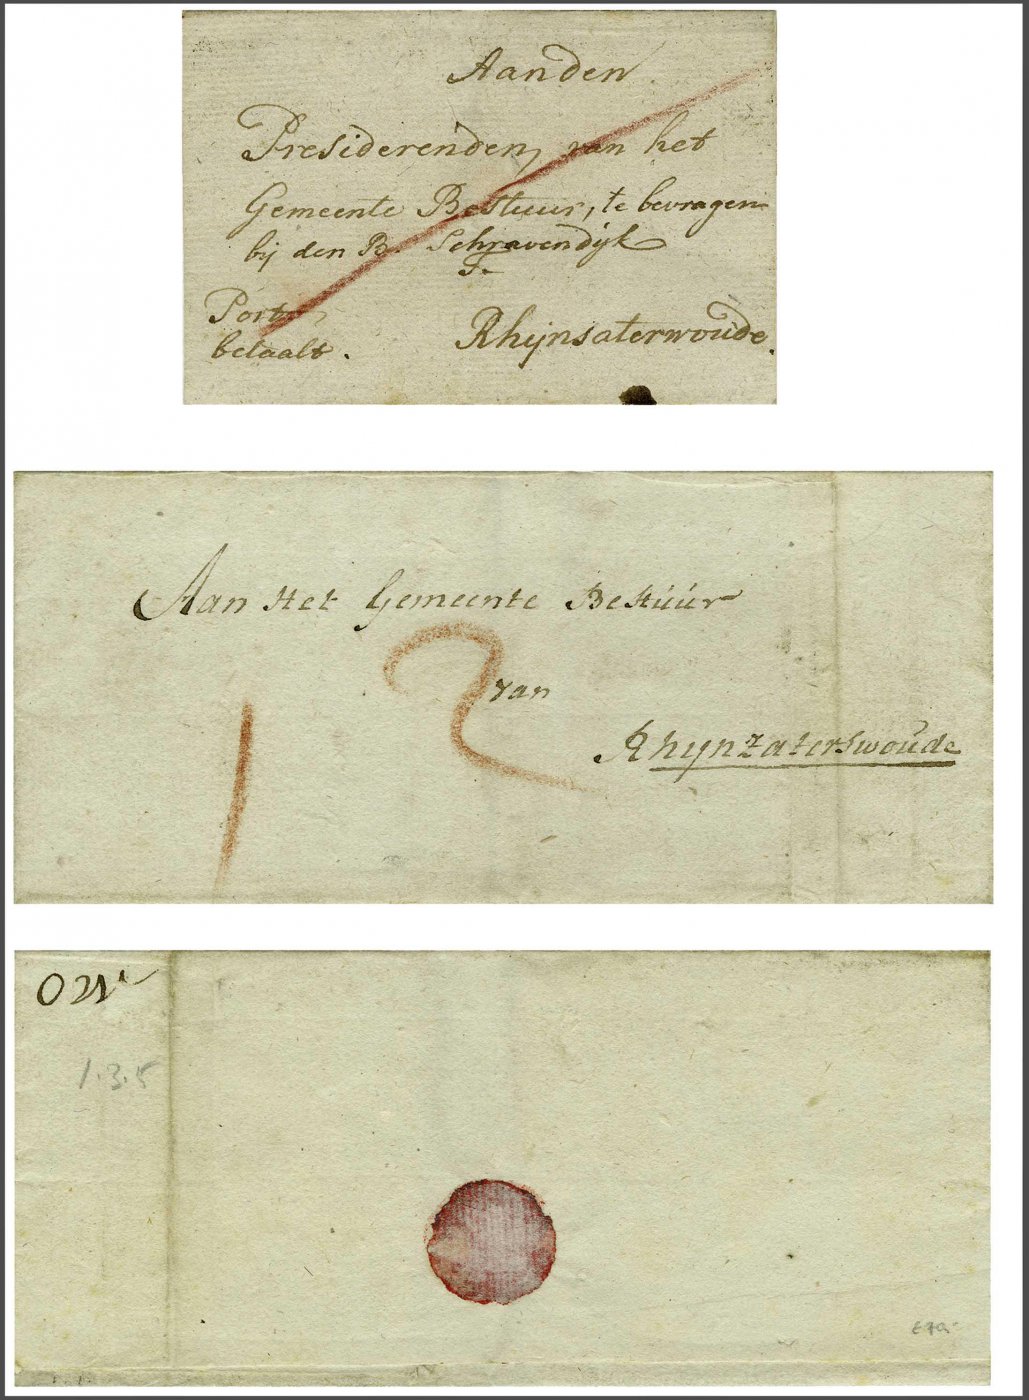 Aan den
Presiderenden, van het
Gemeente Bestuur, te bevragen
bij den B. Schravendijk
Porto
betaalt.
Rhijnsaterwoude.
Aan Het Gemeente Bestuur
12
van
Rhynzaterswoude
1.3.5